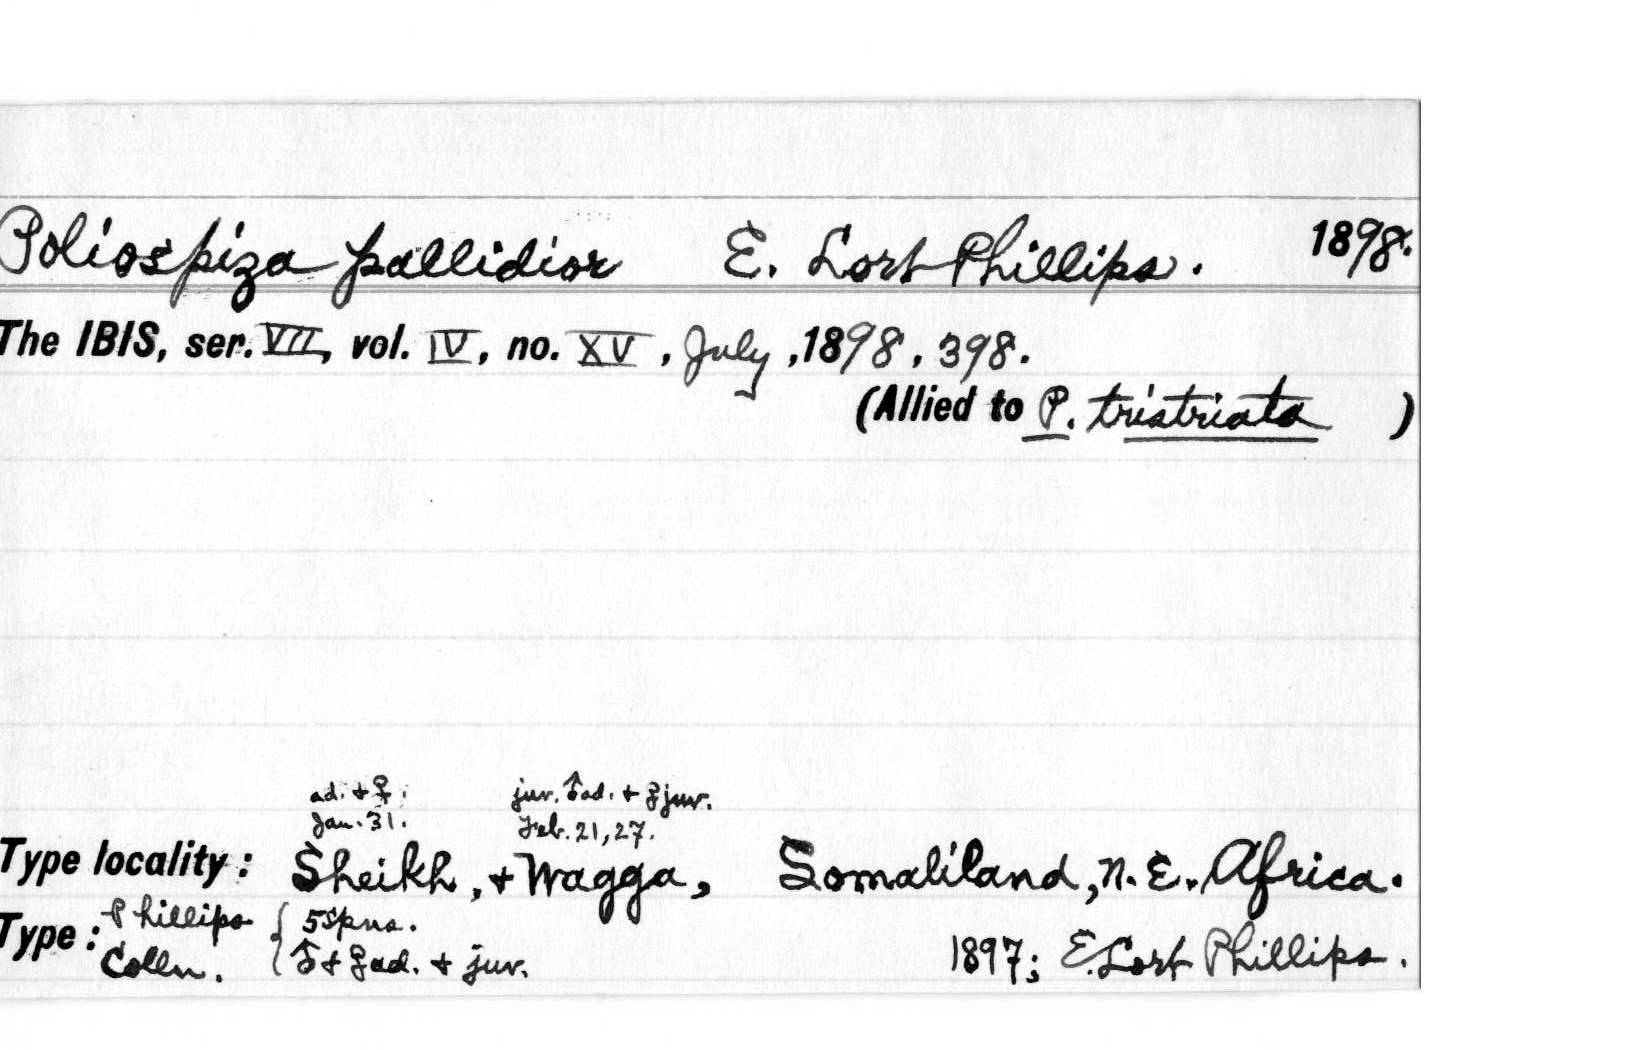 Poliospiza pallidior E. Lort Phillips. 1898.
The IBIS, ser. VII, vol. IV, no. XV, July, 1898, 398.
(Allied to P. tristriata )
ad. + ♀. juv. ♂ad. + ♀juv.
Jan. 31. Feb. 21, 27.
Type locality: Sheikh, + Wagga, Somaliland, N. E. Africa.
Type: Phillips { 5 spns.
Colln. ♂ + ♀ ad. + juv. 1897; E. Lort Phillips.